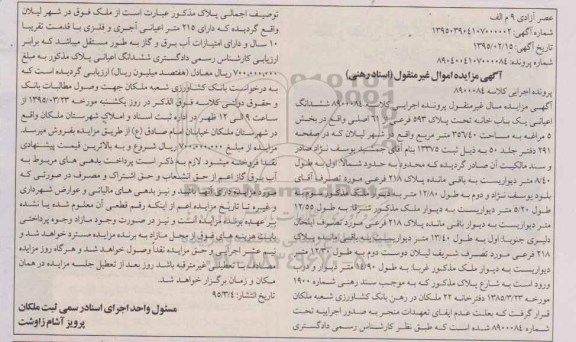 عصر آزادی ۹ م الف
شماره آگهی: ۱۳۹۵۰۳۹۰۴۱۰۷۰۰۰۰۰۲
تاریخ آگهی: ۱۳۹۵/۰۲/۱۵
شماره پرونده: ۸۹۰۴۰۰۴۱۰۷۰۰۰۰۸۴
آگهی مزایده اموال غیر منقول (اسناد رهنی)
پرونده اجرایی کلاسه ۸۹۰۰۰۸۴
آگهی مزایده مال غیر منقول پرونده اجرایی کلاسه ۸۹۰۰۰۸۴ ششدانگ
اعیانی یک باب خانه تحت پلاک ۵۹۳ فرعی از ۶۱ اصلی واقع در بخش
۵ مراغه به مساحت ۳۵۶/۴۰ متر مربع واقع در شهر لیلان که در صفحه
۲۹۱ دفتر جلد ۵۰ به ذیل ثبت ۱۳۳۷۵ بنام آقای یوسف نژاد صادر
و سند مالکیت آن صادر گردیده که محدود به حدود شمالا: اول به طول
۸/۴۰ متر دیواریست به باقی مانده پلاک ۲۱۸ فرعی مورد تصرف آقای
یوسف نژاد و دوم به طول ۱۲/۸۰ متر به
طول ۵/۲۰ متر دیواریست به دیوار ملک مذکور شرقا به طول ۱۲/۵۵
متر دیواریست به دیوار باقی مانده پلاک ۲۱۸ فرعی مورد تصرف
جنوبا اول به طول ۱۳/۴۰ متر دیواریست به باقی مانده پلاک
۲۱۸ فرعی مورد تصرف شریف لیلان دوست دوم به طول
دیواریست به دیوار ملک مذکور غربا به طول ۱۴/۹۰ متر دیوار و درب
ورود است به شارع پلاک مذکور که به موجب سند رهنی شماره ۱۹۰۰
مورخه ۱۳۸۵/۳/۲۳ دفترخانه ۲۲ ملکان در رهن بانک کشاورزی شعبه ملکان
قرار گرفت که بعلت عدم ایفای تعهدات منجر به صدور اجرائیه تحت
شماره ۸۹۰۰۰۸۴ شده است که طبق نظر کارشناس رسمی دادگستری
توصیف اجمالی پلاک مذکور عبارت است از ملک فوق در شهر لیلان
واقع گردیده که دارای ۲۱۵ متر اعیانی آجری و فلزی با قدمت تقریبا
۱۰ سال و دارای امتیازات آب برق و گاز به طور مستقل میباشد که برابر
ارزیابی کارشناس رسمی دادگستری ششدانگ اعیانی پلاک مذکور به مبلغ
۷۰۰,۰۰۰,۰۰۰ ریال معادل (هفتصد میلیون ریال) ارزیابی گردیده است که
به درخواست بانک کشاورزی شعبه ملکان جهت وصول مطالبات بانک
و حقوق دولتی کلاسه فوق الذکر در روز یکشنبه مورخه ۱۳۹۵/۰۳/۲۳ از
ساعت ۹ الی ۱۲ ظهر در اداره ثبت اسناد و املاک شهرستان ملکان واقع
در شهرستان ملکان خیابان امام صادق (ع) از طریق مزایده بفروش میرسد.
مزایده از مبلغ ۷۰۰,۰۰۰,۰۰۰ ریال شروع و به بالاترین قیمت پیشنهادی
نقدا فروخته میشود. لازم به ذکر است پرداخت بدهی های مربوط به
آب برق گاز اعم از حق انشعاب و حق اشتراک و مصرف در صورتی که
مورد مزایده دارای آنها باشد و نیز بدهی های مالیاتی و عوارض شهرداری
و غیره تا تاریخ مزایده اعم از اینکه رقم قطعی آن معلوم شده یا نشده
به عهده برنده مزایده است و نیز در صورت وجود مازاد وجوه پرداختی
بابت هزینه های فوق از محل مازاد به برنده مزایده مسترد خواهد شد و
نیم عشر اجرایی و حق مزایده نقدا وصول خواهد شد و هرگاه روز مزایده
مصادف با تعطیلی غیر مترقبه باشد روز بعد از تعطیل جلسه مزایده در همان
مکان و زمان برگزار خواهد شد.
تاریخ انتشار: ۹۵/۳/۴
مسئول واحد اجرای اسناد رسمی ثبت ملکان
پرویز آشام زاوشت